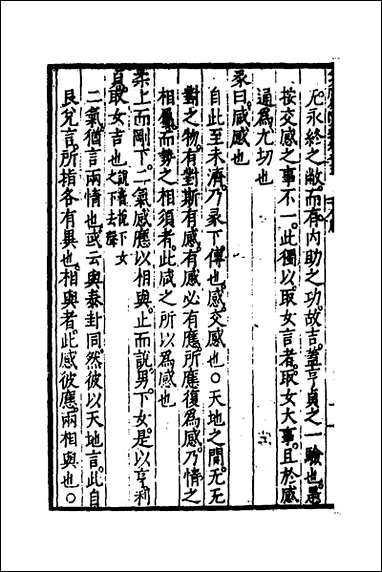 凡永終之敝而有内助之功故言蓋亨貞之一驗也愚
按交感之事不一此獨以取女言者取女大事且於感
通爲尤切也
彖曰咸感也
自此至未濟乃彖下傳也感交感也〇天地之間无无
對之物有對斯有感有感必有應所應復爲感乃情之
相屬而勢之相須者此咸之所以爲咸也
柔上而剛下二氣感應以相與止而說男下女是以亨利
貞取女吉也說音悅下女之下去聲
二氣猶言兩情也或云與泰卦同然彼以天地言此自
艮兌言所指各有異也相與者此感彼應兩相與也〇